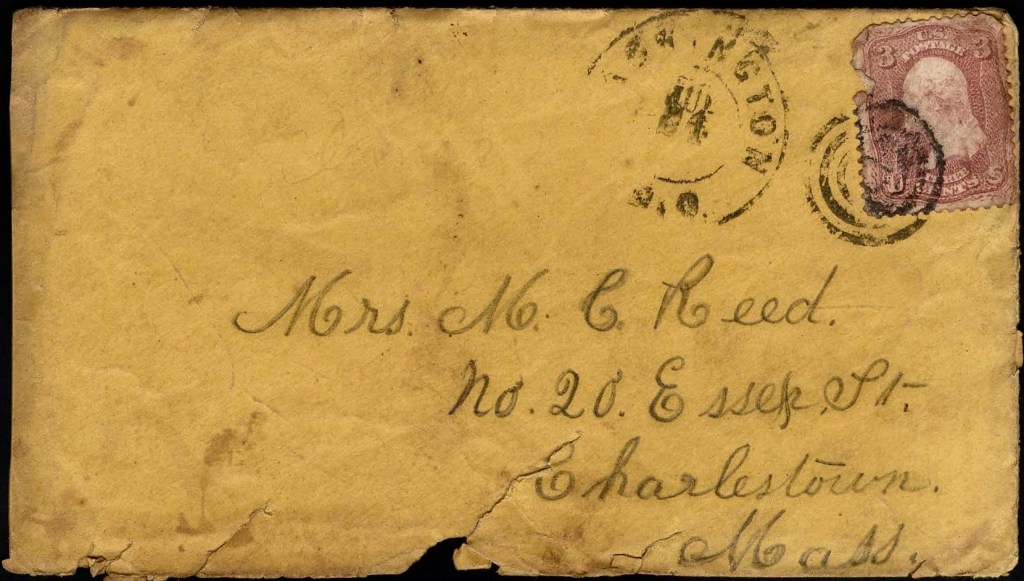 WASHINGTON
D.C.
U.S.
POSTAGE
3 3
CENTS
Mrs. M. C. Reed.
No. 20. Essex St.
Charlestown.
Mass.